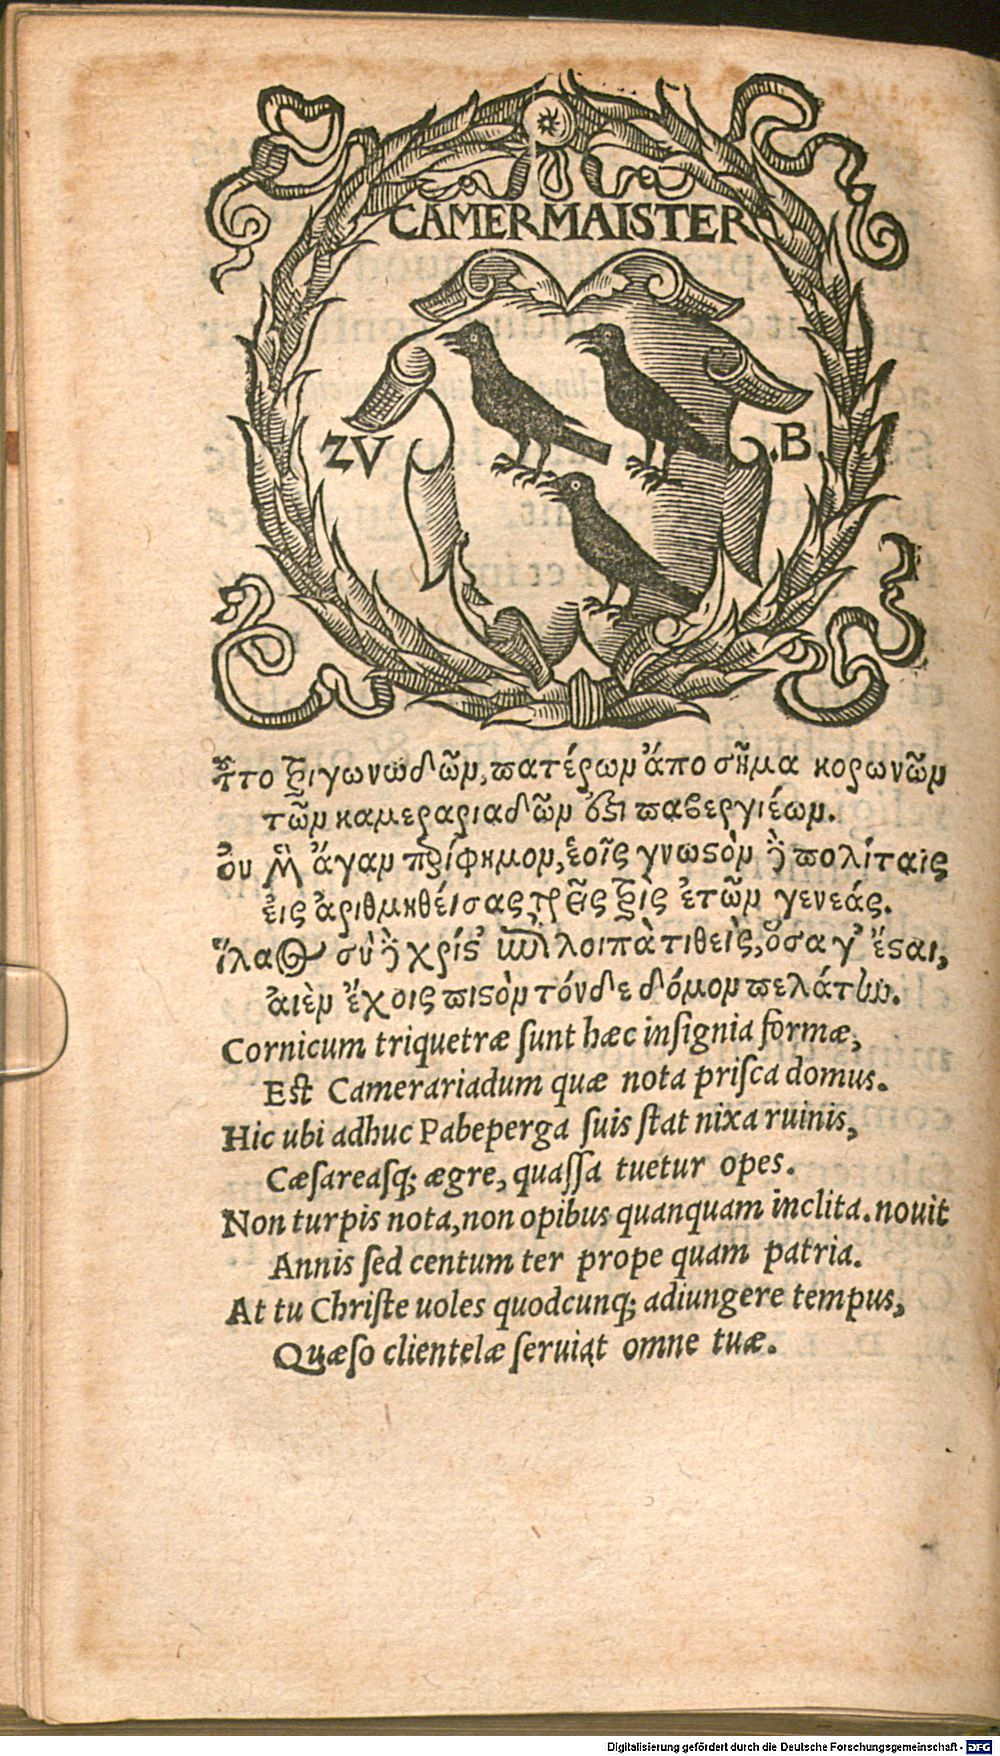 CAMERMAISTER
ZV .B.
τριγωνωδῶν, πατέρων ἄπο σῆμα κορωνῶν
τῶν καμεραριαδῶν παβεργιέων.
ὀυ μὴ ἄγαν περίφημον, ἑοῖς γνωστὸν καὶ πολίταις
ἐις ἀριθμηθείσας τρεῖς τρὶς ἐτῶν γενεάς.
ἵλαος σὺ καὶ χριστὲ λοιπὰ τιθεὶς, ὅσα γ' ἔσται,
ἀιὲν ἔχοις πιστὸν τόνδε δόμον πελάτην.
Cornicum triquetræ ſunt hæc inſignia formæ,
Eſt Camerariadum quæ nota priſca domus.
Hic ubi adhuc Pabeperga ſuis ſtat nixa ruinis,
Cæſareasq; ægre, quaſſa tuetur opes.
Non turpis nota, non opibus quanquam inclita. nouit
Annis ſed centum ter prope quam patria.
At tu Chriſte uoles quodcunq; adiungere tempus,
Quæſo clientelæ ſeruiat omne tuæ.
Digitalisierung gefördert durch die Deutsche Forschungsgemeinschaft - DFG